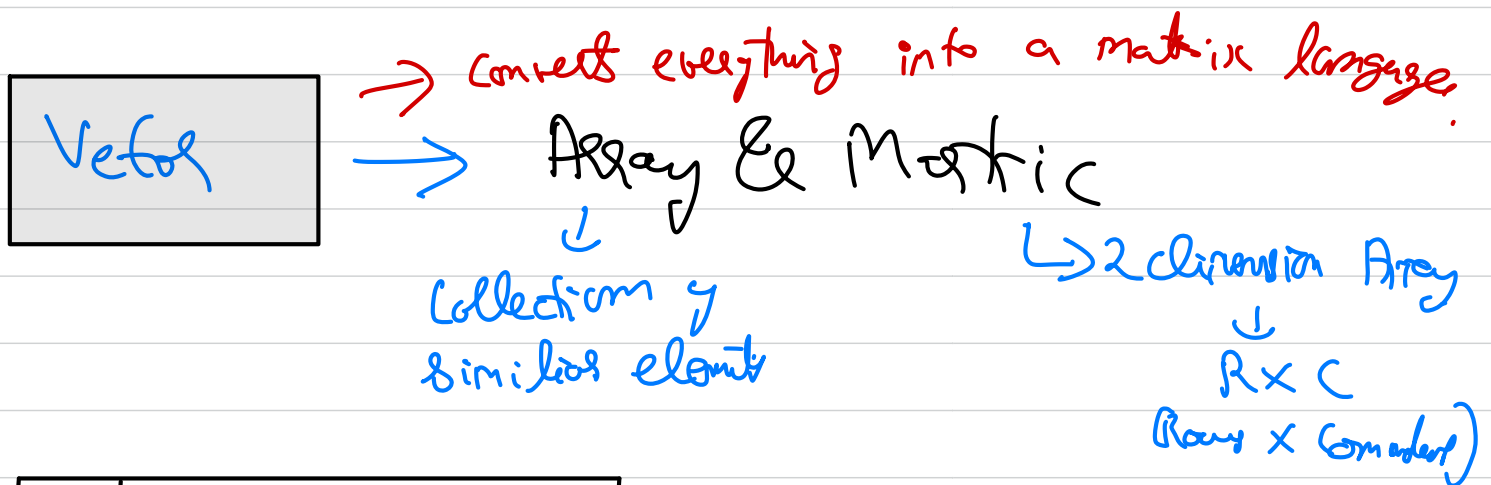 → converts everything into a matrix language.
Vector → Array & Matric
↓
Collection of
similar elements
↳ 2 dimension Array
↓
R x C
(Rows x